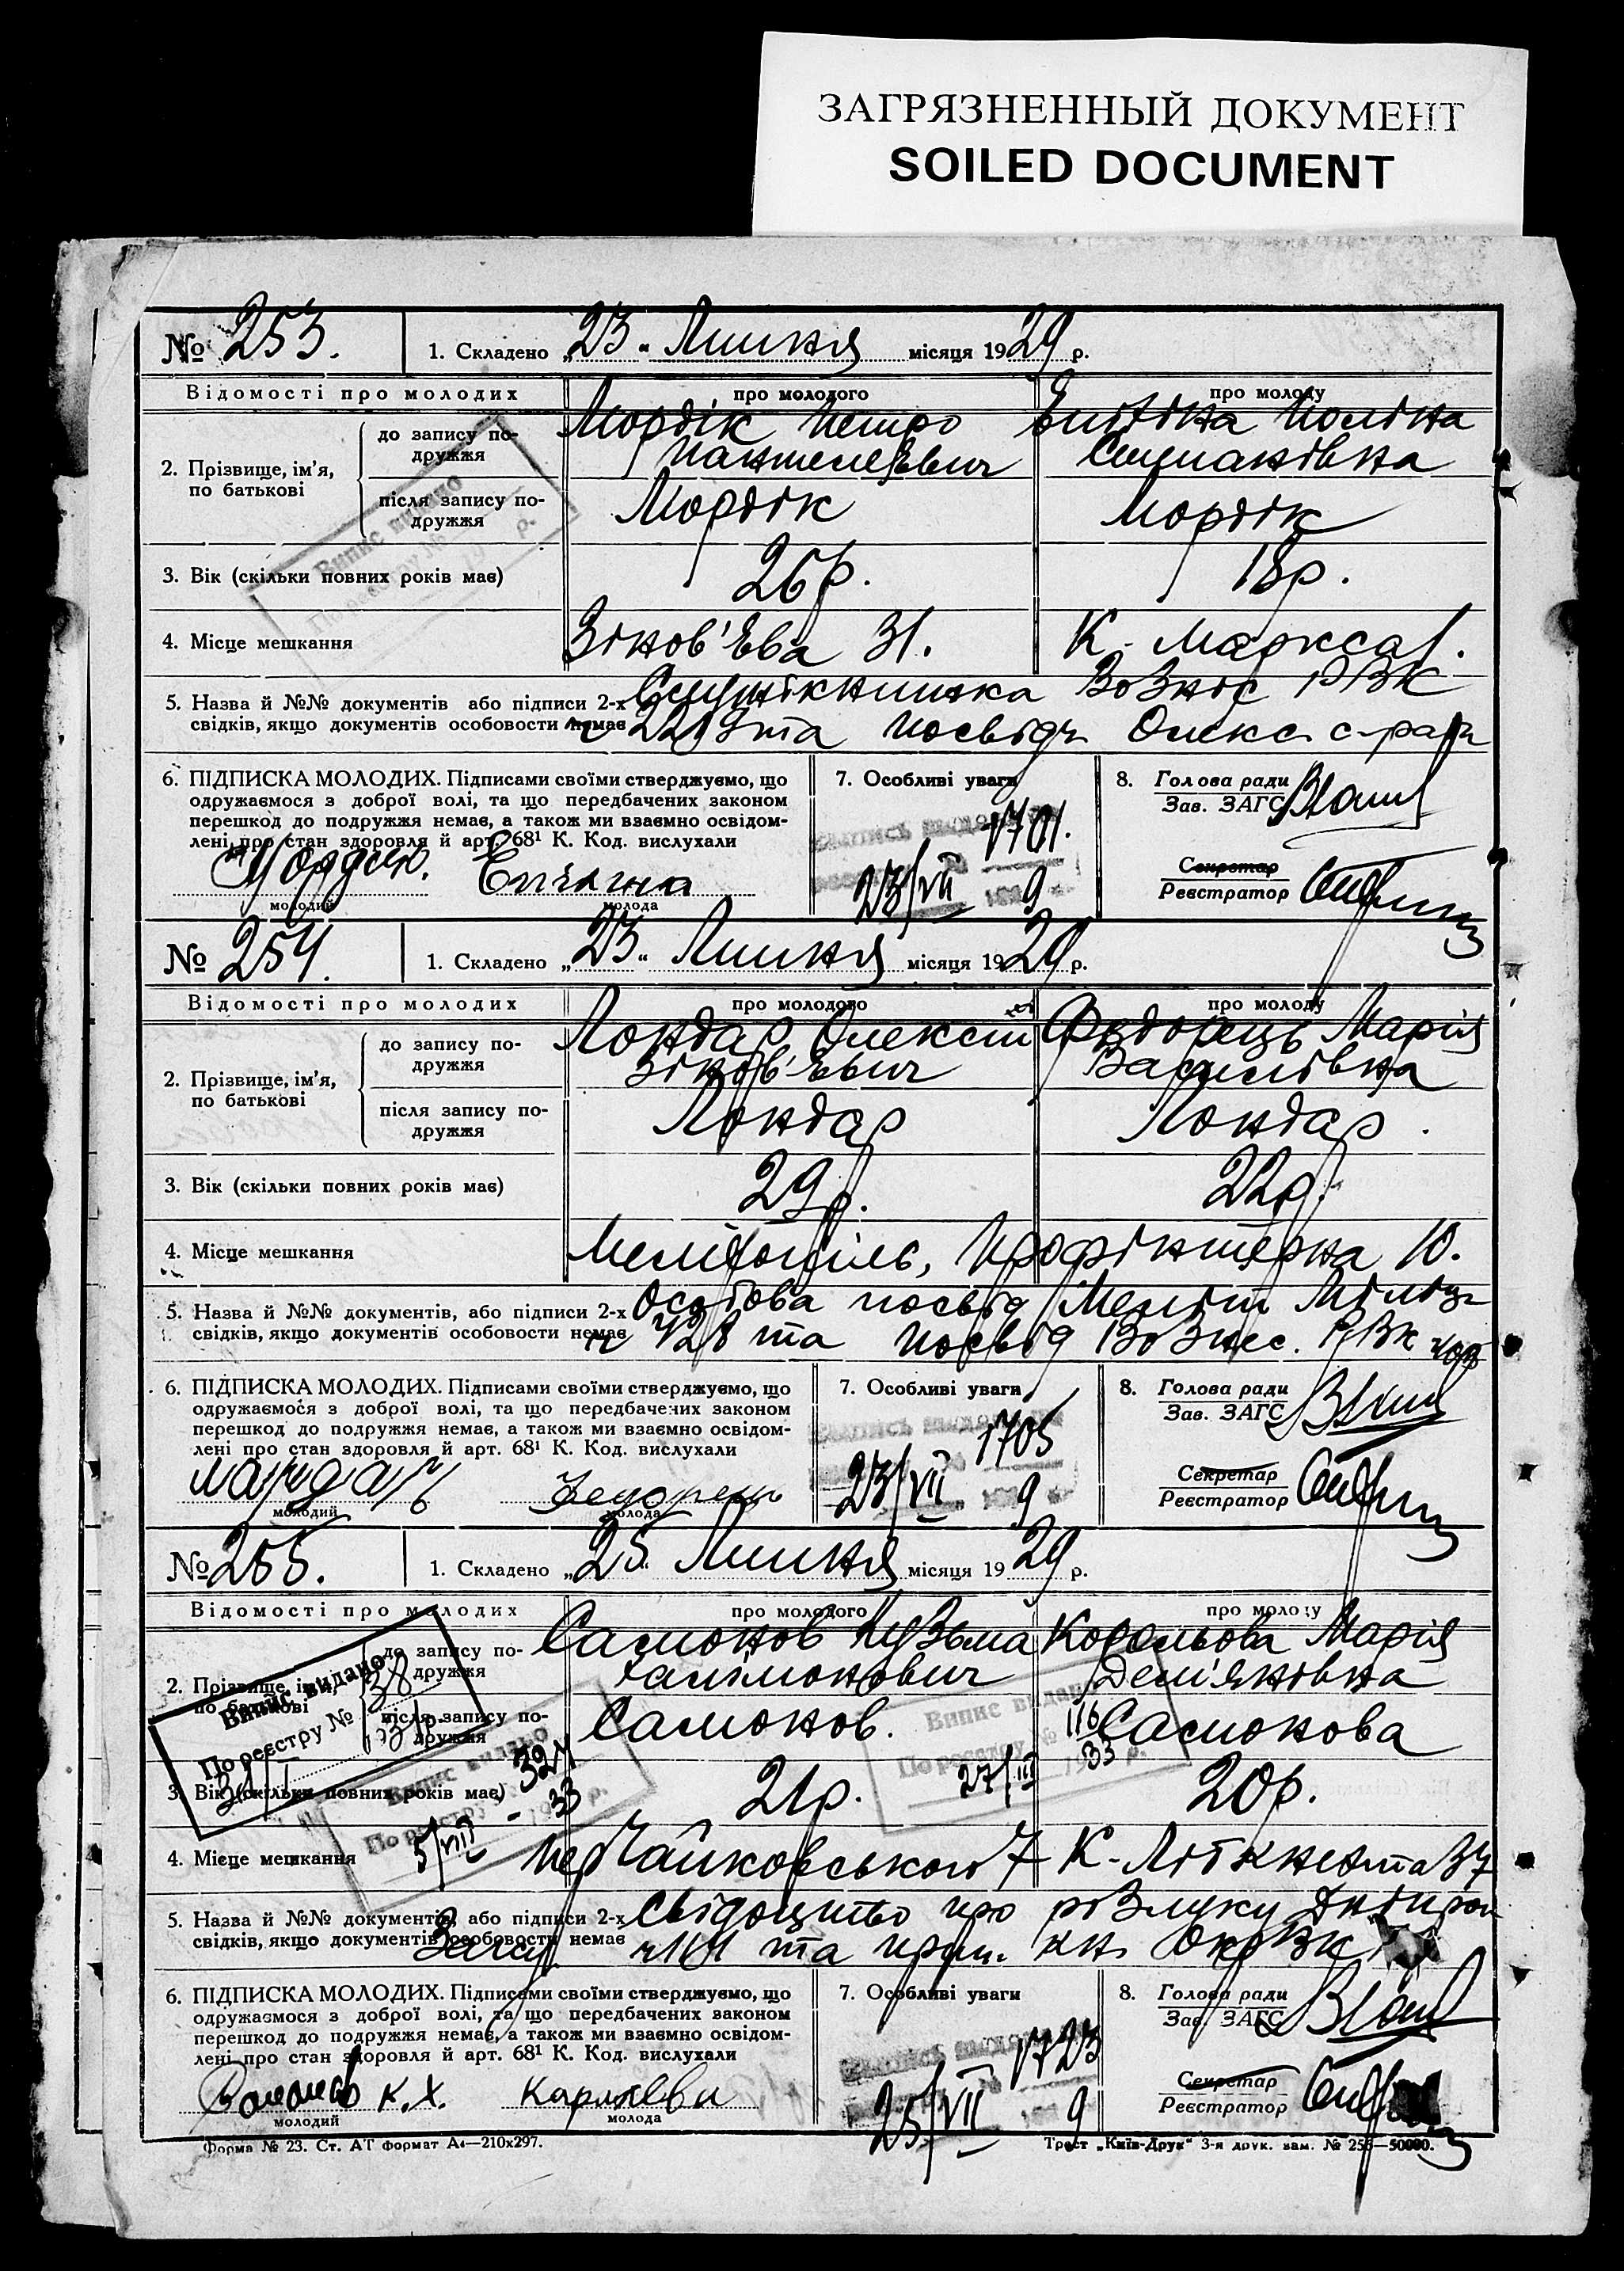 ЗАГРЯЗНЕННЫЙ ДОКУМЕНТ
SOILED DOCUMENT
№ 253. 1. Складено „23“ Липня місяця 1929 р.
Відомості про молодих про молодого про молоду
2. Прізвище, ім’я, по батькові
до запису подружжя Мордік Петро Пантелеєвич Поліна Степанівна
після запису подружжя Мордік Мордік
3. Вік (скільки повних років має) 26 р. 18 р.
4. Місце мешкання Зінов'єва 31. К. Маркса 1.
5. Назва й №№ документів або підписи 2-х Вознес РВК
свідків, якщо документів особовости немає та посвідч Олекс с-ради
6. ПІДПИСКА МОЛОДИХ. Підписами своїми стверджуємо, що
одружаємося з доброї волі, та що передбачених законом
перешкод до подружжя немає, а також ми взаємно освідом-
лені про стан здоровля й арт. 68¹ К. Код. вислухали
молодий молода
7. Особливі уваги
1701.
23/VII 9
8. Голова ради
Зав. ЗАГС
Секретар
Реєстратор
№ 254. 1. Складено „23“ Липня місяця 1929 р.
Відомості про молодих про молодого про молоду
2. Прізвище, ім’я, по батькові
до запису подружжя Лондар Олексій Зінов'євич Федорець Марія Василівна
після запису подружжя Лондар Лондар.
3. Вік (скільки повних років має) 29 р. 22 р.
4. Місце мешкання Мелітопіль, Профінтерна 10.
5. Назва й №№ документів, або підписи 2-х Особова посвід Меліт Міліц
свідків, якщо документів особовости немає ч 428 та посвід Вознес. РВК
6. ПІДПИСКА МОЛОДИХ. Підписами своїми стверджуємо, що
одружаємося з доброї волі, та що передбачених законом
перешкод до подружжя немає, а також ми взаємно освідом-
лені про стан здоровля й арт. 68¹ К. Код. вислухали
Федорець
молодий молода
7. Особливі уваги
1705
23/VII 9
8. Голова ради
Зав. ЗАГС
Секретар
Реєстратор
№ 255. 1. Складено „25“ Липня місяця 1929 р.
Відомості про молодих про молодого про молоду
2. Прізвище, ім’я, по батькові
до запису подружжя Самонов Кузьма Харітонович Корольова Марія Дем'янівна
після запису подружжя Самонов. Самонова
Випис видано
По реєстру №
3. Вік (скільки повних років має) 21 р. 20 р.
27/III 33
4. Місце мешкання 5/VIII пер Чайковського 7 К-Лібкнехта 37
5. Назва й №№ документів, або підписи 2-х Свідоцтво про розлуку Дніпроп
свідків, якщо документів особовости немає Загсу та прип. кн ОкрВК
6. ПІДПИСКА МОЛОДИХ. Підписами своїми стверджуємо, що
одружаємося з доброї волі, та що передбачених законом
перешкод до подружжя немає, а також ми взаємно освідом-
лені про стан здоровля й арт. 68¹ К. Код. вислухали
К.Х.
молодий молода
7. Особливі уваги
1723
25/VII 9
8. Голова ради
Зав. ЗАГС
Секретар
Реєстратор
Форма № 23. Ст. АТ формат А4—210х297. Трест „Київ-Друк“ 3-я друк. зам. № 256—50000.